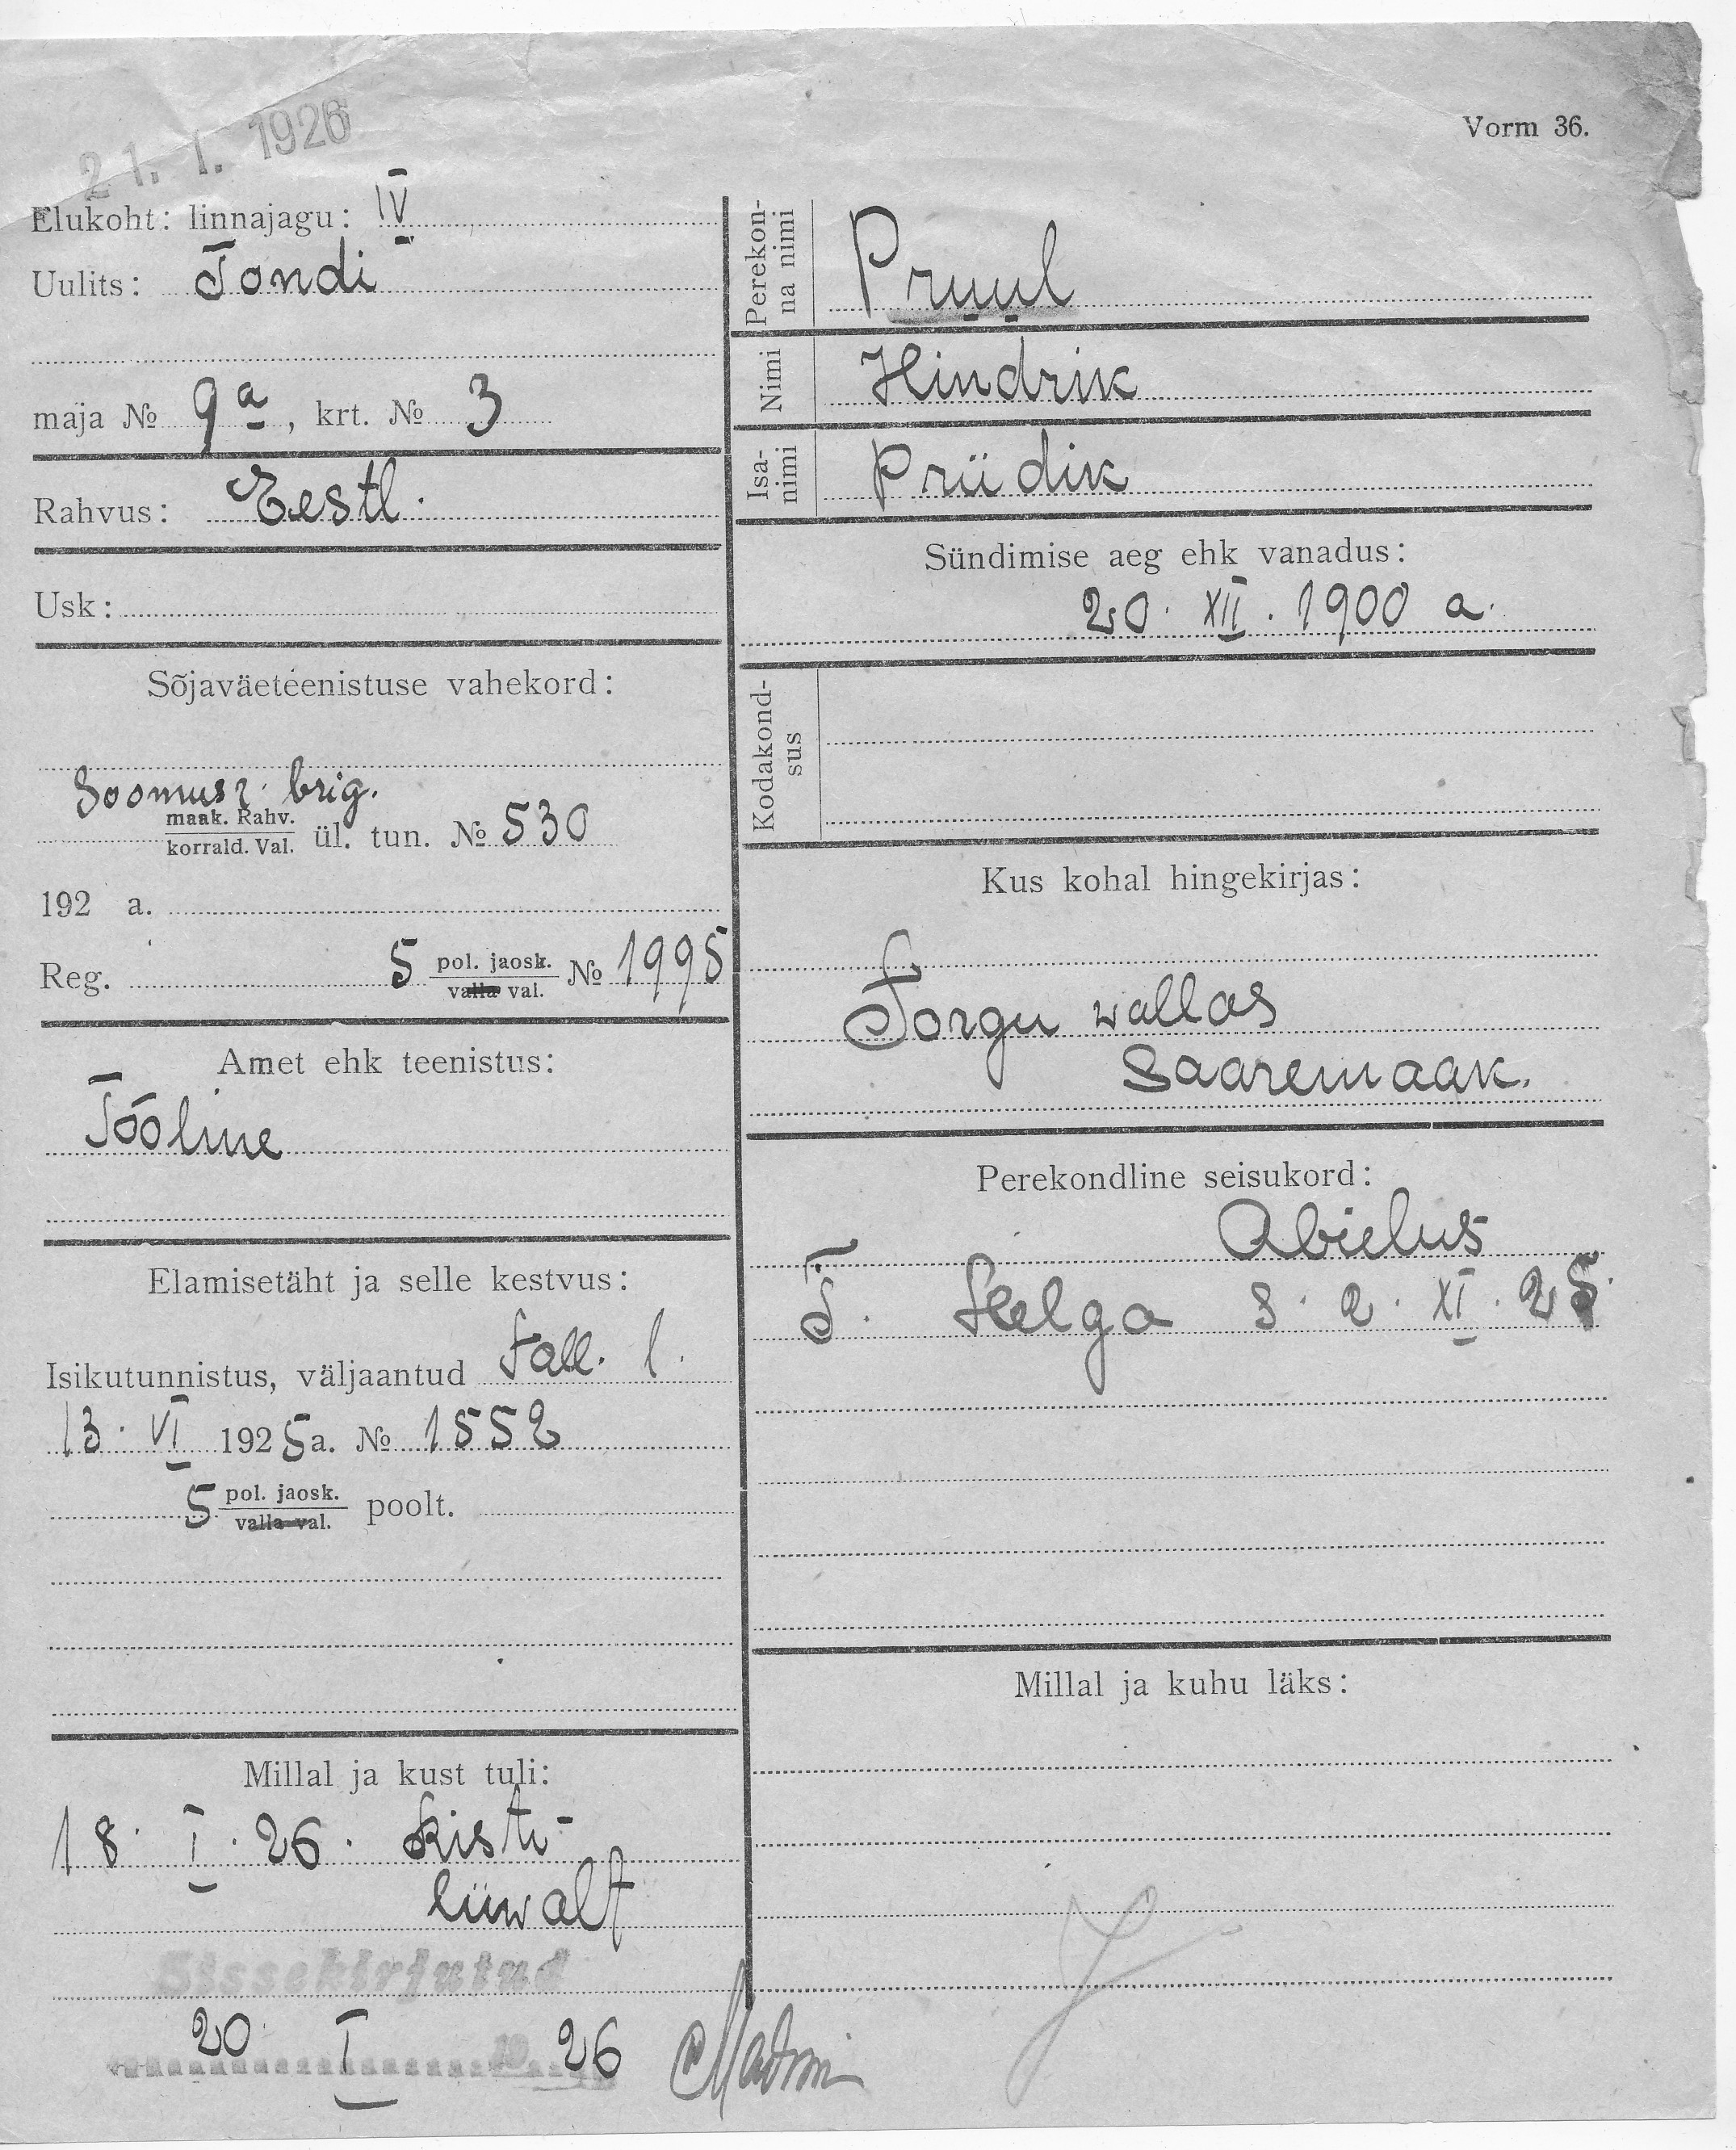 21. I. 1926
Vorm 36.
Elukoht: linnajagu: IV
Uulits: Tondi
maja № 9a, krt. № 3
Rahvus: Eestl.
Usk:
Sõjaväeteenistuse vahekord:
Soomusr. brig.
maak. Rahv.
korrald. Val. ül. tun. № 530
192 a.
Reg. 5 pol. jaosk. № 1995
valla val.
Amet ehk teenistus:
Tööline
Elamisetäht ja selle kestvus:
Isikutunnistus, väljaantud Tall. l.
13. VI 1925 a. № 1552
5 pol. jaosk. poolt.
valla val.
Millal ja kust tuli:
18. I. 26. Risti-
liiwalt
Sissekirjutud
20. I 1926
Perekonna nimi
Pruul
Nimi
Hindrik
Isanimi
Priidik
Sündimise aeg ehk vanadus:
20. XII. 1900 a.
Kodakondsus
Kus kohal hingekirjas:
Torgu wallas
Saaremaak.
Perekondline seisukord:
Abielus
T. Helga s. 2. XI. 25.
Millal ja kuhu läks: